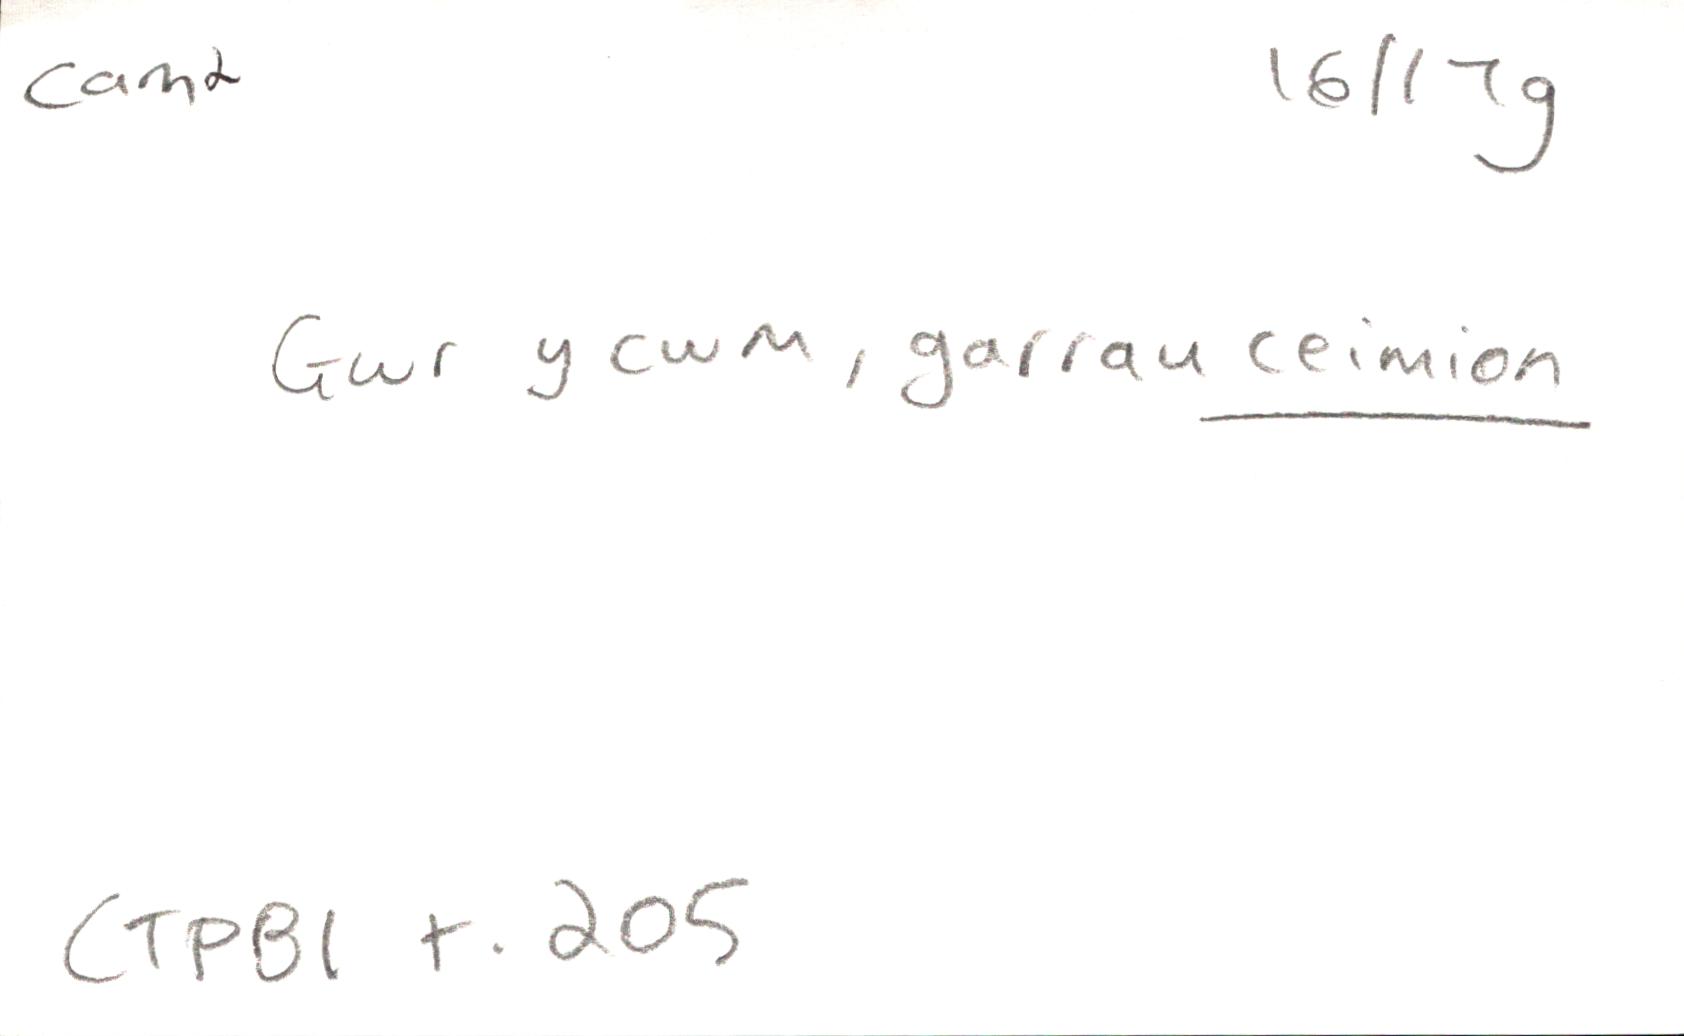 cam2
16/17g
Gwr y cwm, garrau ceimion
CTPB1 t. 205